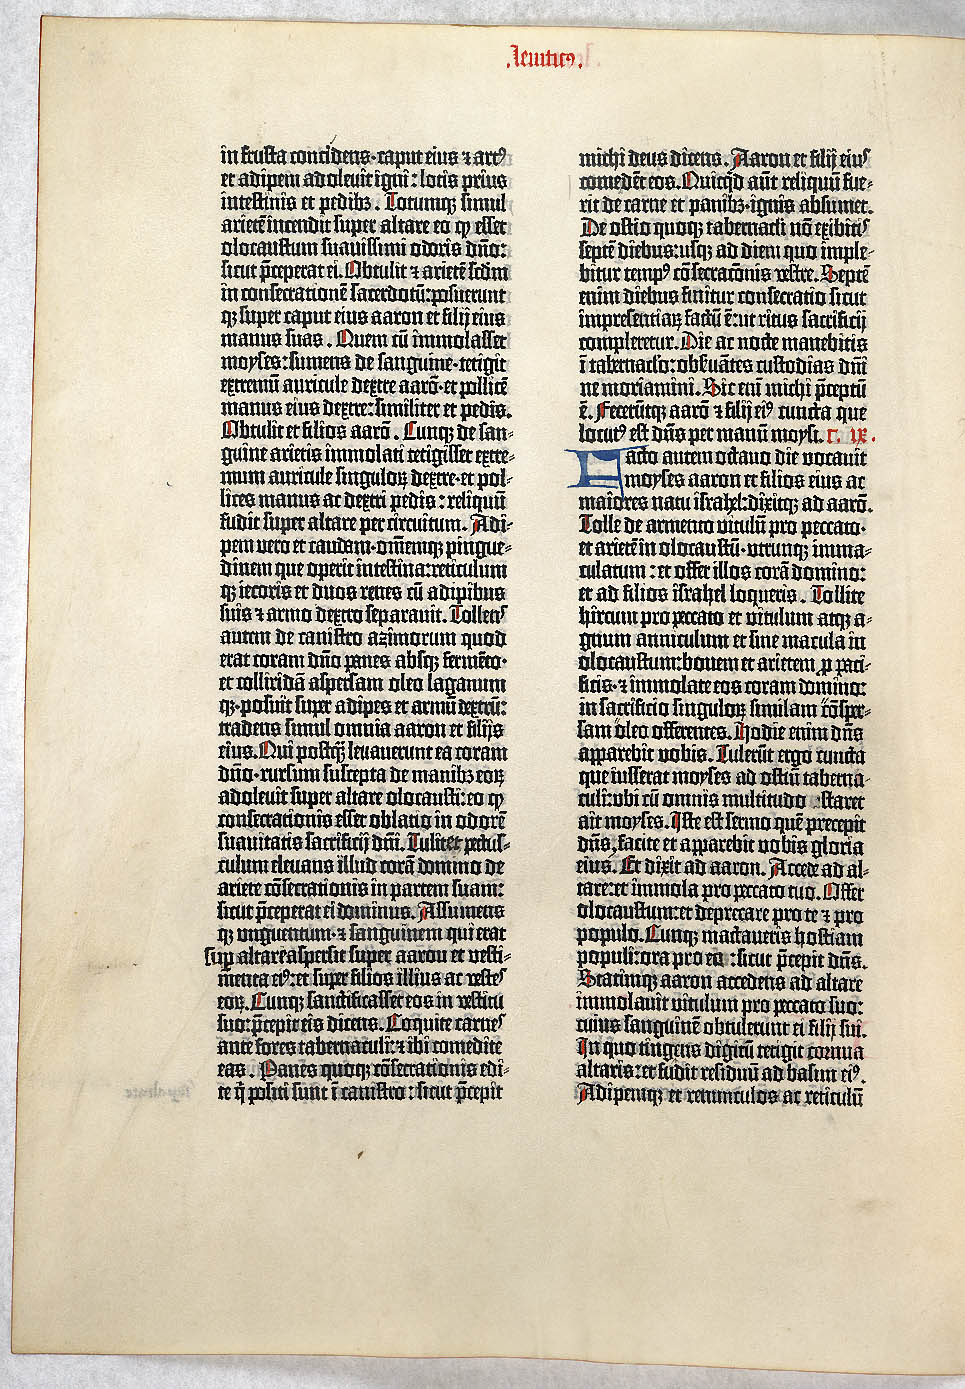 .leuiticꝰ.
in frusta concidens·caput eius ⁊ artꝰ
et adipem adoleuit igni: lotis prius
intestinis et pedibꝫ. Totumqꝫ simul
arietē incendit super altare eo ꝙ esset
olocaustum suauissimi odoris dño:
sicut p̄ceperat ei. Obtulit ⁊ arietē scd̄m
in consecrationē sacerdotū: posuerunt
qꝫ super caput eius aaron et filij eius
manus suas. Quem cū immolasset
moyses: sumens de sanguine·tetigit
extremū auricule dextre aarō·et pollicē
manus eius dextre: similiter et pedis.
Obtulit et filios aarō. Cunqꝫ de san-
guine arietis immolati tetigisset extre-
mum auricule singuloꝝ dextre·et pol-
lices manus ac dextri pedis: reliquū
fudit super altare per circuitum. Adi-
pem vero et caudam·om̄emqꝫ pingue-
dinem que operit intestina: reticulum
qꝫ iecoris et duos renes cū adipibus
suis ⁊ armo dextro separauit. Tollens
autem de canistro azimorum quod
erat coram dño panes absqꝫ fermēto·
et colliridā aspersam oleo laganum
qꝫ·posuit super adipes et armū dextrū:
tradens simul omnia aaron et filijs
eius. Qui postqꝫ leuauerunt ea coram
dño·rursum suscepta de manibꝫ eoꝝ
adoleuit super altare olocausti: eo ꝙ
consecrationis esset oblatio in odorē
suauitatis sacrificij dñi. Tulit et pectus-
culum eleuans illud corā domino de
ariete cōsecrationis in partem suam:
sicut p̄ceperat ei dominus. Assumens
qꝫ vnguentum·⁊ sanguinem qui erat
suꝑ altari aspersit super aaron et vesti-
menta eiꝰ: et super filios illius ac vestes
eoꝝ. Cunqꝫ sanctificasset eos in vestitu
suo: p̄cepit eis dicens. Coquite carnes
ante fores tabernaculi: ⁊ ibi comedite
eas. Panes quoqꝫ cōsecrationis edi-
te q̄ positi sunt ī canistro: sicut p̄cepit
michi deus dicens. Aaron et filij eiuˢ
comedēt eos. Quicq̇d aūt reliquū fue-
rit de carne et panibꝫ·ignis absumet.
De ostio quoqꝫ tabernacli nō exibitis
septē diebus: usqꝫ ad diem quo imple-
bitur tempꝰ cōsecracōnis vestre. Septē
enim diebus finitur consecratio sicut
impresentiaꝝ factū ē: ut ritus sacrificij
completetur. Die ac nocte manebitis
ī tabernaclo: obẜuātes custodias dñi
ne moriamini. Sic enī michi p̄ceptū
ē. Fecerūtqꝫ aarō ⁊ filij eiꝰ cuncta que
locutꝰ est dñs per manū moysi. c. ix.
Facto autem octauo die vocauit
moyses aaron et filios eius ac
maiores natu israhel: dixitqꝫ ad aarō.
Tolle de armento vitulū pro peccato·
et arietē in olocaustū·vtrunqꝫ imma-
culatum: et offer illos corā domino:
et ad filios israhel loqueris. Tollite
hircum pro peccato et vitulum atqꝫ a-
gnum anniculum et sine macula in
olocaustum: bouem et arietem ꝓ paci-
ficis·⁊ immolate eos coram domino:
in sacrificio singuloꝝ similam cōsper-
sam oleo offerentes. Hodie enim dñs
apparebit vobis. Tulerūt ergo cuncta
que iusserat moyses ad ostiū taberna-
culi: vbi cū omnis multitudo staret
ait moyses. Iste est sermo quē precepit
dñs, facite et apparebit vobis gloria
eius. Et dixit ad aaron. Accede ad al-
tare: et immola pro peccato tuo. Offer
olocaustum: et deprecare pro te ⁊ pro
populo. Cunqꝫ mactaueris hostiam
populi: ora pro eo: sicut p̄cepit dñs.
Statimqꝫ aaron accedens ad altare
immolauit vitulum pro peccato suo:
cuius sanguinē obtulerunt ei filij sui.
In quo tingens digitū tetigit cornua
altaris: et fudit residuū ad basim eiꝰ.
Adipemqꝫ et renunculos ac reticulū